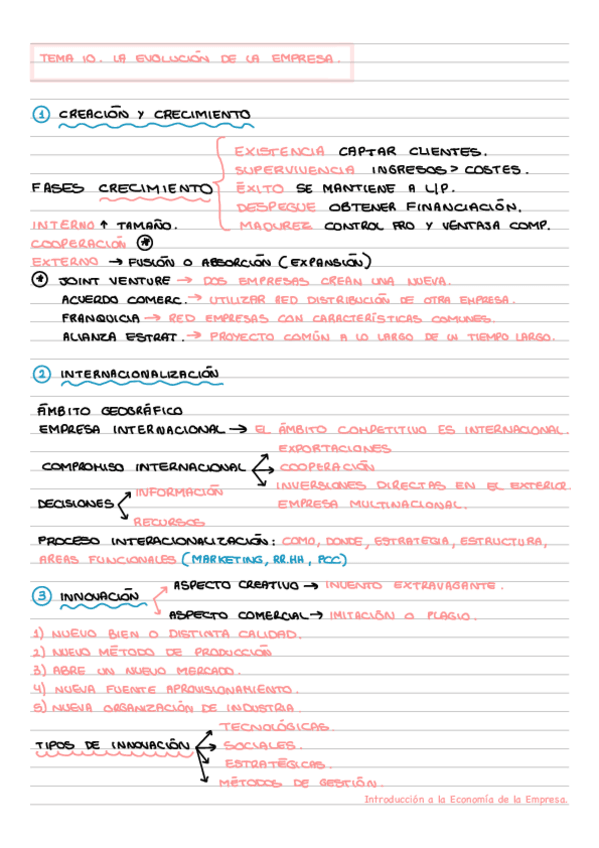 TEMA 10. LA EVOLUCIÓN DE LA EMPRESA.
① CREACIÓN Y CRECIMIENTO
EXISTENCIA CAPTAR CLIENTES.
SUPERVIVENCIA INGRESOS > COSTES.
FASES CRECIMIENTO ÉXITO SE MANTIENE A L/P.
DESPEGUE OBTENER FINANCIACIÓN.
INTERNO ↑ TAMAÑO. MADUREZ CONTROL FRO Y VENTAJA COMP.
COOPERACIÓN *
EXTERNO → FUSIÓN O ABSORCIÓN (EXPANSIÓN)
* JOINT VENTURE → DOS EMPRESAS CREAN UNA NUEVA.
ACUERDO COMERC. → UTILIZAR RED DISTRIBUCIÓN DE OTRA EMPRESA.
FRANQUICIA → RED EMPRESAS CON CARACTERÍSTICAS COMUNES.
ALIANZA ESTRAT. → PROYECTO COMÚN A LO LARGO DE UN TIEMPO LARGO.
② INTERNACIONALIZACIÓN
ÁMBITO GEOGRÁFICO
EMPRESA INTERNACIONAL → EL ÁMBITO COMPETITIVO ES INTERNACIONAL.
EXPORTACIONES
COMPROMISO INTERNACIONAL COOPERACIÓN
INVERSIONES DIRECTAS EN EL EXTERIOR.
INFORMACIÓN
DECISIONES EMPRESA MULTINACIONAL.
RECURSOS
PROCESO INTERACIONALIZACIÓN: COMO, DONDE, ESTRATEGIA, ESTRUCTURA,
AREAS FUNCIONALES (MARKETING, RR.HH, PCC)
ASPECTO CREATIVO → INVENTO EXTRAVAGANTE.
③ INNOVACIÓN
ASPECTO COMERCIAL → IMITACIÓN O PLAGIO.
1) NUEVO BIEN O DISTINTA CALIDAD.
2) NUEVO MÉTODO DE PRODUCCIÓN
3) ABRE UN NUEVO MERCADO.
4) NUEVA FUENTE APROVISIONAMIENTO.
5) NUEVA ORGANIZACIÓN DE INDUSTRIA.
TECNOLÓGICAS.
TIPOS DE INNOVACIÓN SOCIALES.
ESTRATÉGICAS.
MÉTODOS DE GESTIÓN.
Introducción a la Economía de la Empresa.